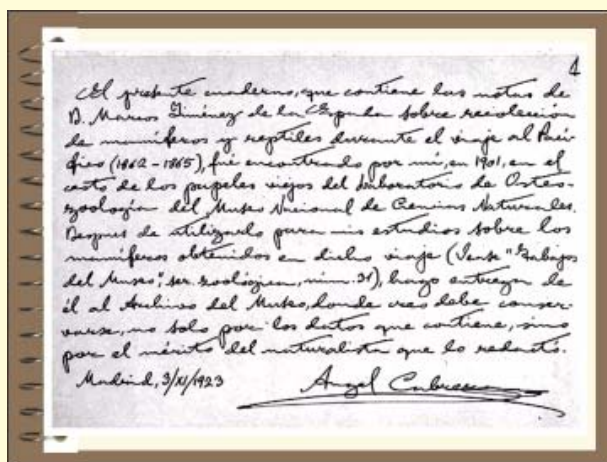 1
El presente cuaderno, que contiene las notas de
D. Marcos Jiménez de la Espada sobre recolección
de mamíferos y reptiles durante el viaje al Pací-
fico (1862-1865), fué encontrado por mí, en 1901, en el
cesto de los papeles viejos del Laboratorio de Osteo-
zoología del Museo Nacional de Ciencias Naturales.
Después de utilizarlo para mis estudios sobre los
mamíferos obtenidos en dicho viaje (Véase "Trabajos
del Museo", ser. zoológica, núm. 31), hago entrega de
él al Archivo del Museo, donde creo debe conser-
varse, no solo por los datos que contiene, sino
por el mérito del naturalista que lo redactó.
Madrid, 3/XI/1923 Angel Cabrera